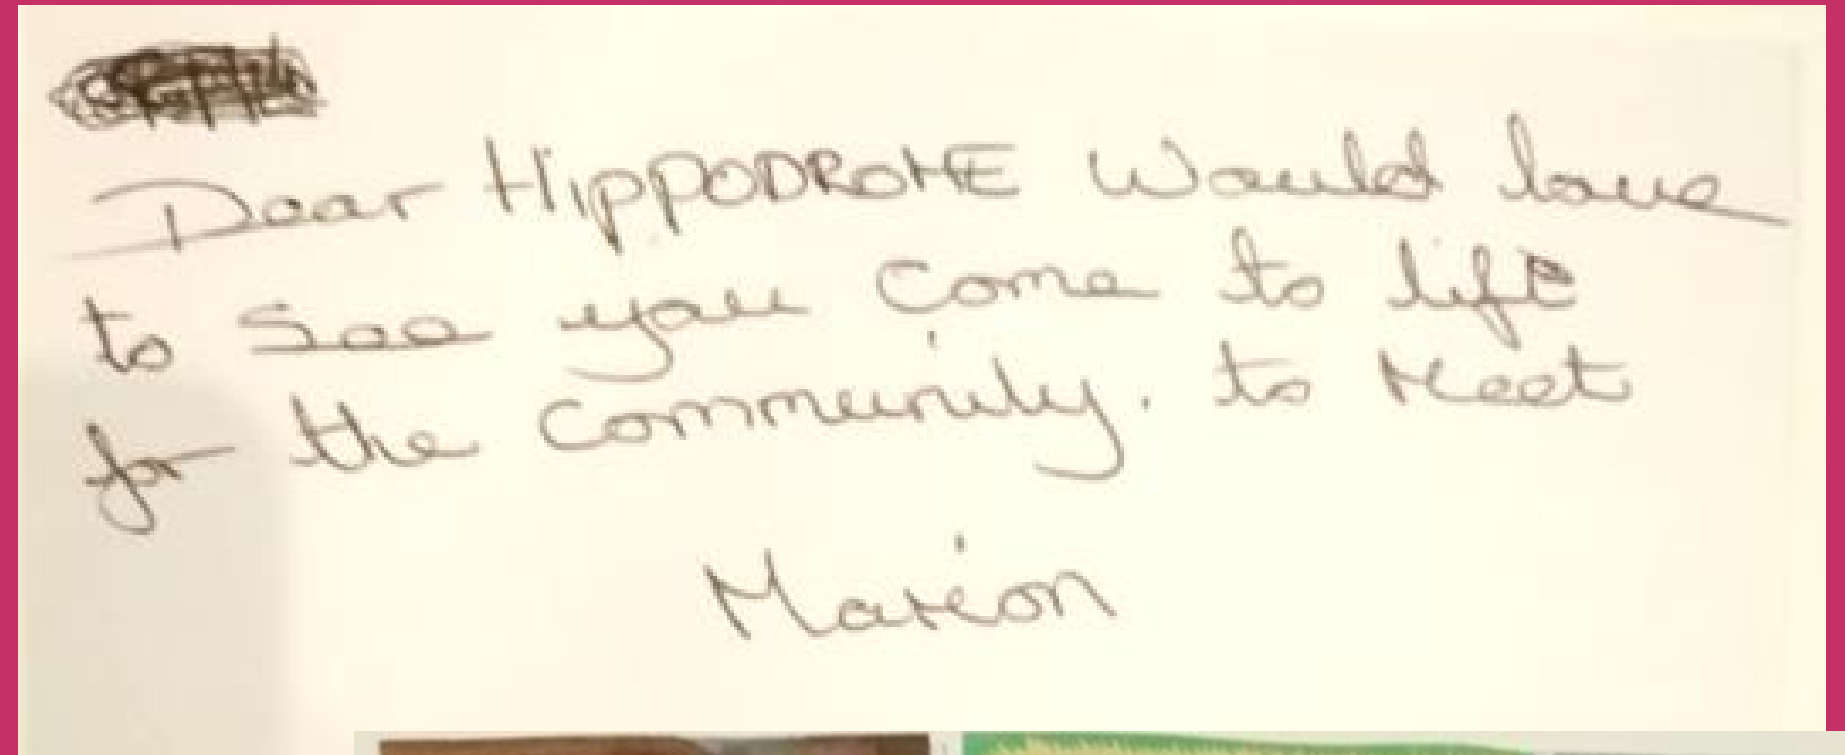 Dear HIPPODROME Would love
to see you come to life
for the community. to Meet
Marion